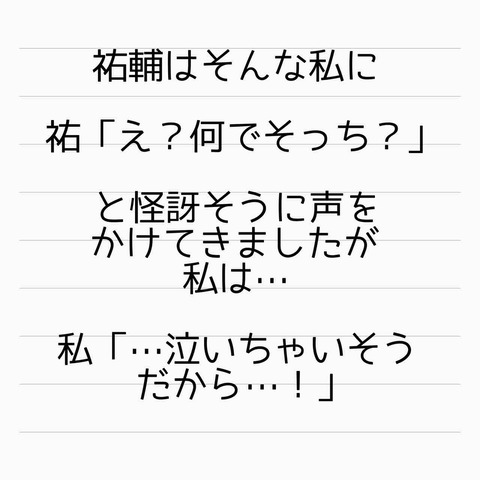 祐輔はそんな私に
祐「え？何でそっち？」
と怪訝そうに声を
かけてきましたが
私は…
私「…泣いちゃいそう
だから…！」